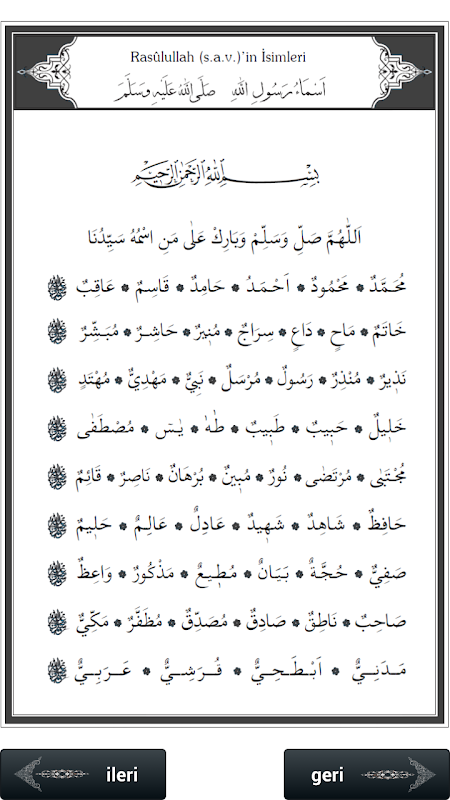 Rasûlullah (s.a.v.)'in İsimleri
اَسْمَاءُ رَسُولِ اللهِ صَلَّى اللهُ عَلَيْهِ وَسَلَّمَ
بِسْمِ اللهِ الرَّحْمٰنِ الرَّحِيمِ
اَللّٰهُمَّ صَلِّ وَسَلِّمْ وَبَارِكْ عَلٰى مَنِ اسْمُهُ سَيِّدُنَا
مُحَمَّدٌ * مَحْمُودٌ * اَحْمَدُ * حَامِدٌ * قَاسِمٌ * عَاقِبٌ ﷺ
خَاتَمٌ * مَاحٍ * دَاعٍ * سِرَاجٌ * مُنِيرٌ * حَاشِرٌ * مُبَشِّرٌ ﷺ
نَذِيرٌ * مُنْذِرٌ * رَسُولٌ * مُرْسَلٌ * نَبِيٌّ * مَهْدِيٌّ * مُهْتَدٍ ﷺ
خَلِيلٌ * حَبِيبٌ * طَبِيبٌ * طٰهٰ * يٰسٓ * مُصْطَفٰى ﷺ
مُجْتَبٰى * مُرْتَضٰى * نُورٌ * مُبِينٌ * بُرْهَانٌ * نَاصِرٌ * قَائِمٌ ﷺ
حَافِظٌ * شَاهِدٌ * شَهِيدٌ * عَادِلٌ * عَالِمٌ * حَلِيمٌ ﷺ
صَفِيٌّ * حُجَّةٌ * بَيَانٌ * مُطِيعٌ * مَذْكُورٌ * وَاعِظٌ ﷺ
صَاحِبٌ * نَاطِقٌ * صَادِقٌ * مُصَدِّقٌ * مُظَفَّرٌ * مَكِّيٌّ ﷺ
مَدَنِيٌّ * اَبْطَحِيٌّ * قُرَشِيٌّ * عَرَبِيٌّ ﷺ
ileri geri